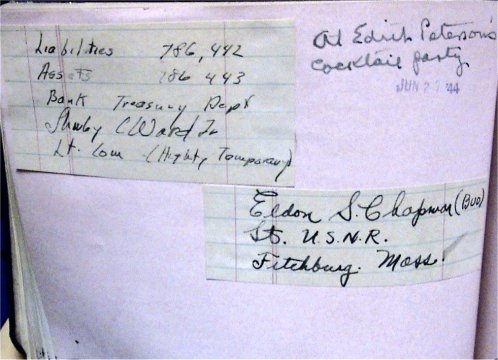 Liabilities 786,442
Assets 786 443
Bank Treasury Dept
Ward Jr
Lt. Com (Highty Temporary)
At Edith Peterson's
cocktail party
JUN 27 '44
Eldon S. Chapman (BUD)
Lt. U.S.N.R.
Fitchburg. Mass.